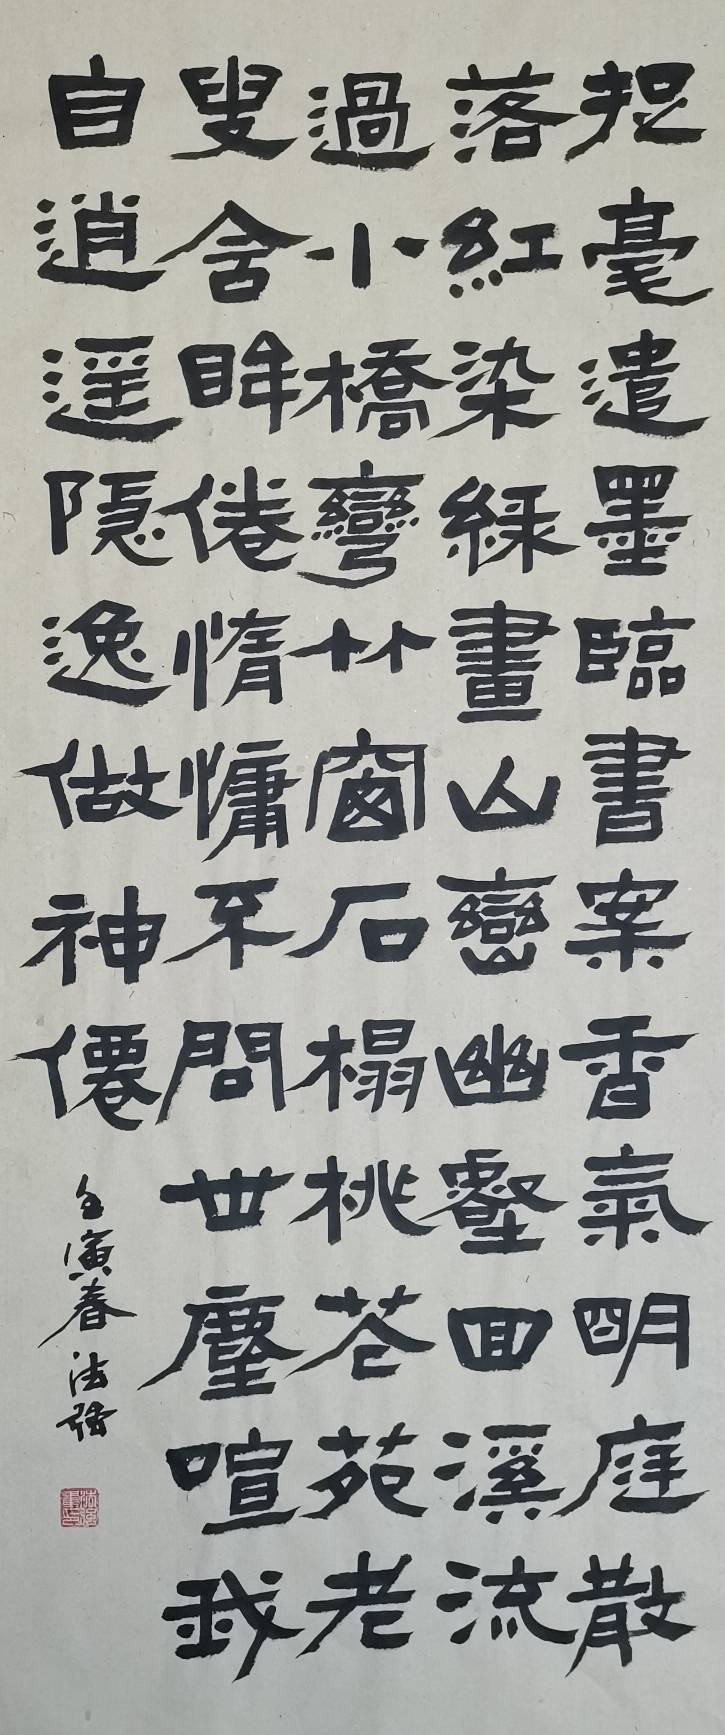 把毫遣墨臨書案香氣明庭散
落紅染緑畫山巒幽壑回溪流
過小橋彎竹窗石榻桃花苑老
叟舍眸倦惰慵不問世塵喧我
自逍遥隱逸做神僊
壬寅春法强